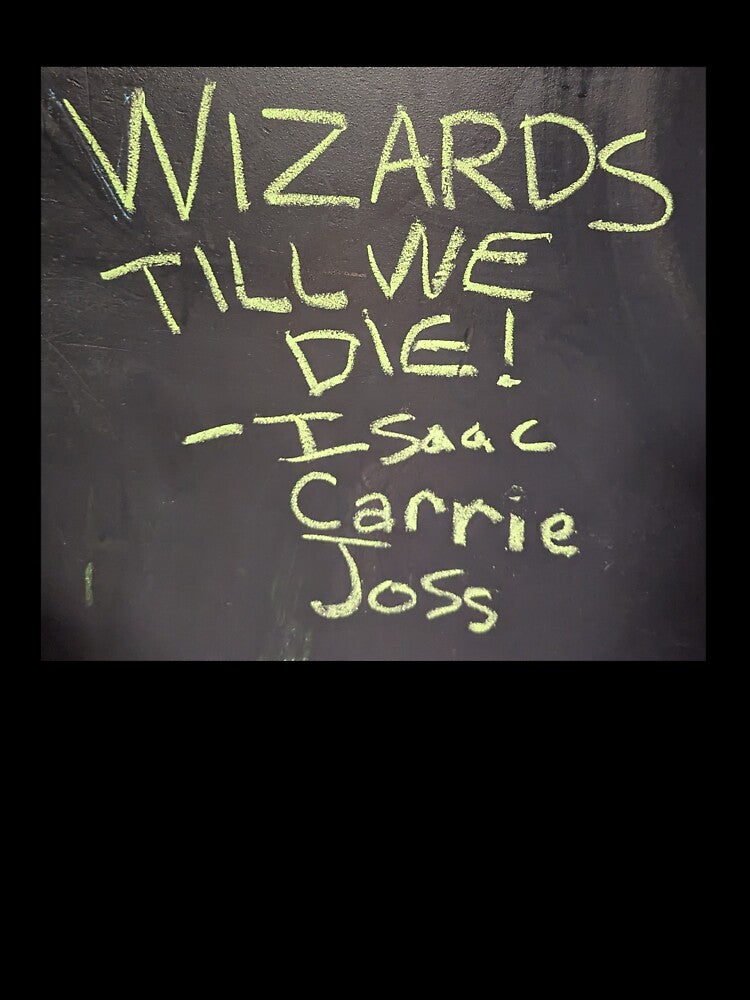 WIZARDS
TILL WE
DIE!
- Isaac
Carrie
Joss